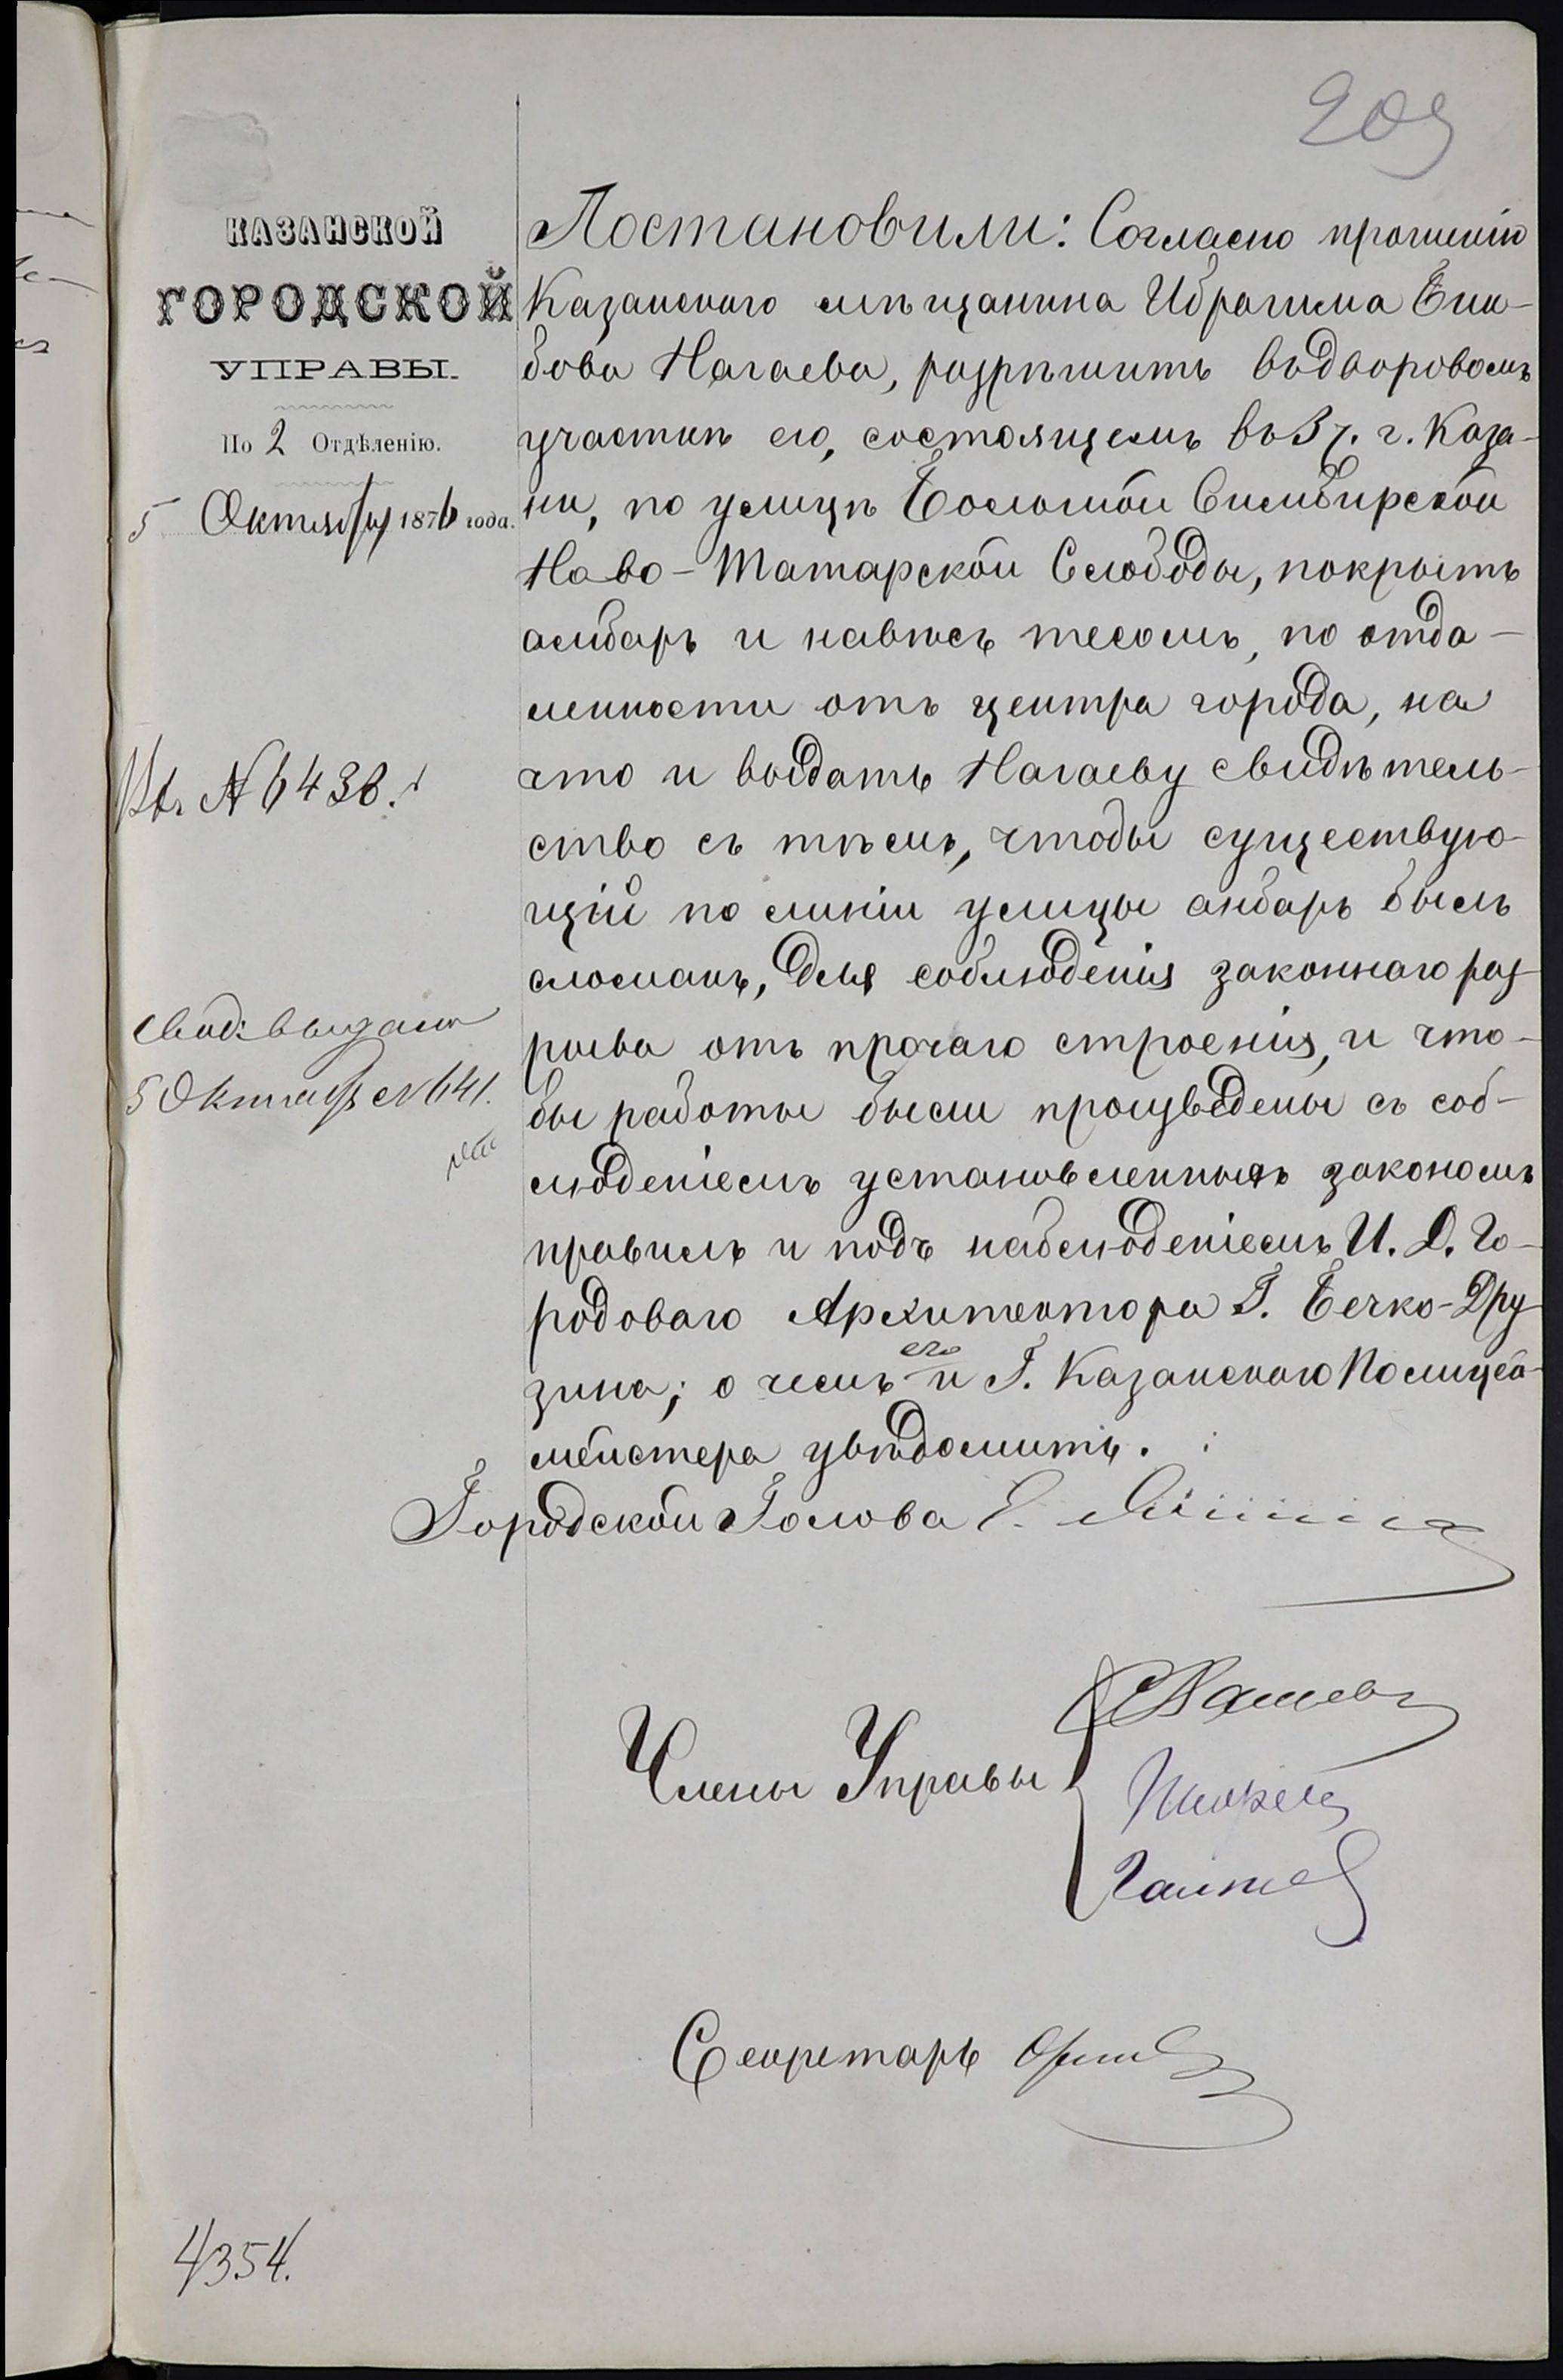 209
КАЗАНСКОЙ
ГОРОДСКОЙ
УПРАВЫ.
По 2 Отдѣленію.
5 Октября 1876 года.
Вх. № 6438.
Свид: выдано
5 Октября № 641.
Постановили: Согласно прошенію
Казанскаго мѣщанина Ибрагима
Нагаева, разрѣшить въ дворовомъ
участкѣ его, состоящемъ въ 3 ч. г. Каза-
ни, по улицѣ Большой Симбирской
Ново-Татарской Слободы, покрыть
амбаръ и навѣсъ тесомъ, по отда-
ленности отъ центра города, на
что и выдать Нагаеву свидѣтель-
ство съ тѣмъ, чтобы существую-
щій по линіи улицы анбаръ былъ
сломанъ, для соблюденія законнаго раз-
рыва отъ прочаго строенія, и что-
бы работы были произведены съ соб-
люденіемъ установленныхъ закономъ
правилъ и подъ наблюденіемъ И. Д. Го-
родоваго Архитектора Г. Бечко-Дру
зина; о чемъ его и Г. Казанскаго Полицей-
мейстера увѣдомить.
Городской Голова Е.
Члены Управы
Секретарь
4354.